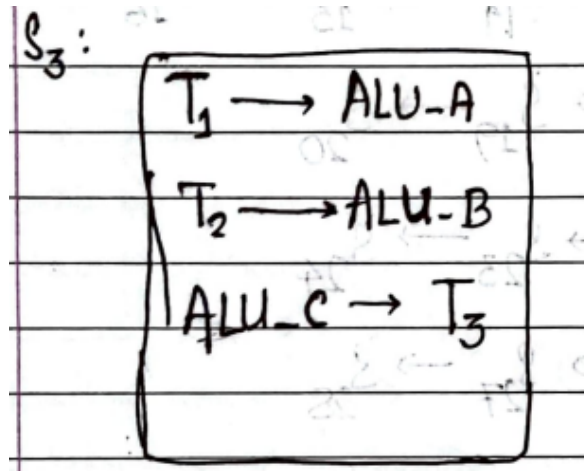 S₃:
T₁ → ALU-A
T₂ → ALU-B
ALU-C → T₃